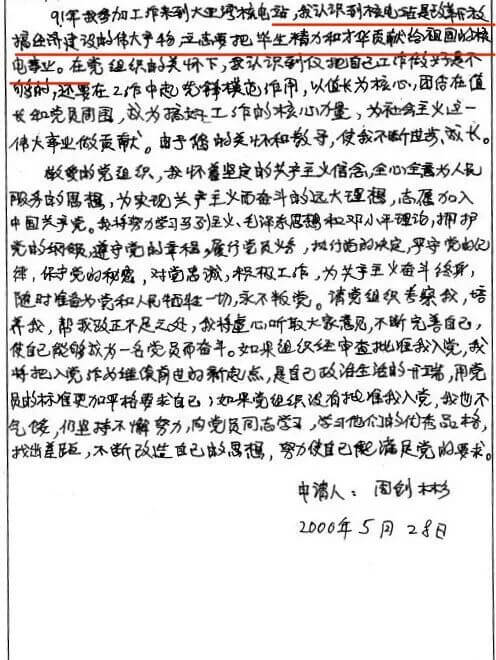 91年我参加工作来到大亚湾核电站,我认识到核电站是改革开放
搞经济建设的伟大产物,立志要把毕生精力和才华贡献给祖国的核
电事业。在党组织的关怀下,我认识到仅把自己工作做好是不
够的,还要在工作中起先锋模范作用,以值长为核心,团结在值
长和党员周围,成为搞好工作的核心力量,为社会主义这一
伟大事业做贡献。由于您的关怀和教导,使我不断进步、成长。
敬爱的党组织,我怀着坚定的共产主义信念,全心全意为人民
服务的思想,为实现共产主义而奋斗的远大理想,志愿加入
中国共产党。我将努力学习马列主义、毛泽东思想和邓小平理论,拥护
党的纲领,遵守党的章程,履行党员义务,执行党的决定,严守党的纪
律,保守党的秘密,对党忠诚,积极工作,为共产主义奋斗终身,
随时准备为党和人民牺牲一切,永不叛党。请党组织考察我,培
养我,帮我改正不足之处,我将虚心听取大家意见,不断完善自己,
使自己能够成为一名党员而奋斗。如果组织经审查批准我入党,我
将把入党作为继续前进的新起点,是自己政治生活的开端,用党
员的标准更加严格要求自己;如果党组织没有批准我入党,我也不
气馁,仍坚持不懈努力,向党员同志学习,学习他们的优秀品格,
找出差距,不断改造自己的思想,努力使自己能满足党的要求。
申请人:周创彬
2000年5月28日